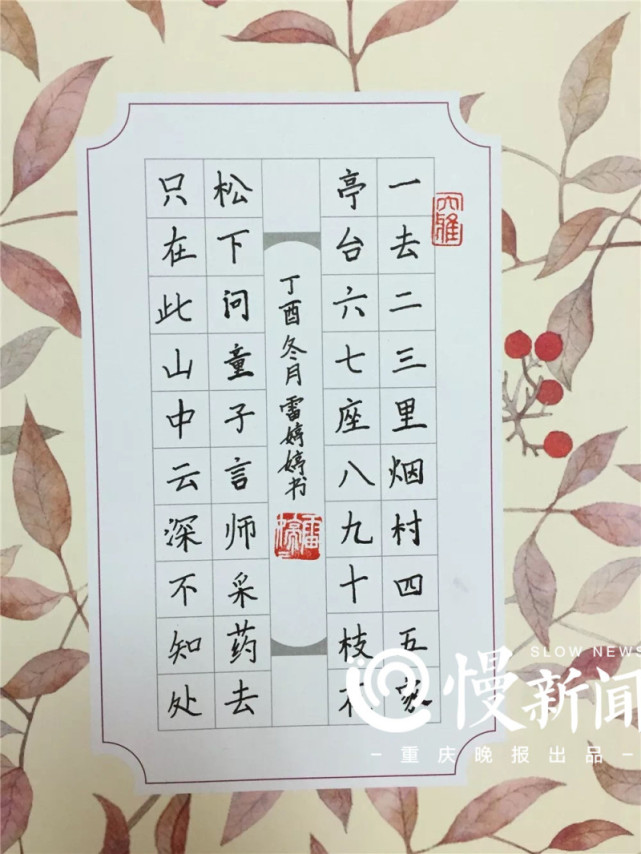 大雅
一去二三里烟村四五家
亭台六七座八九十枝花
丁酉冬月雷婷婷书
松下问童子言师采药去
只在此山中云深不知处
SLOW NEWS
慢新闻
－重庆晚报出品－